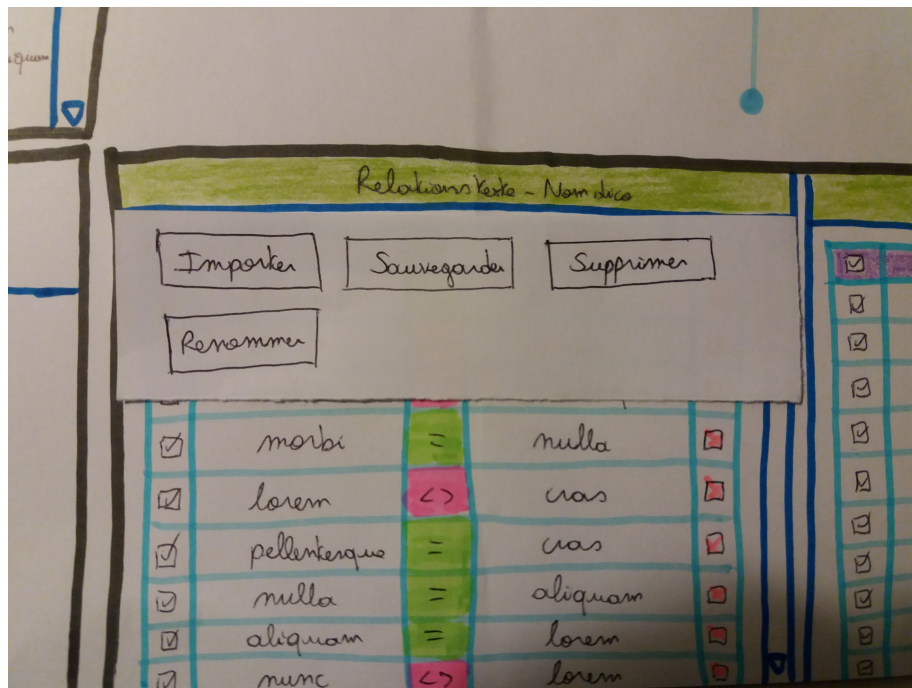 Relations texte - Nom dico
Importer Sauvegarder Supprimer
Renommer
morbi = nulla
lorem <> cras
pellentesque = cras
nulla = aliquam
aliquam = lorem
nunc <> lorem